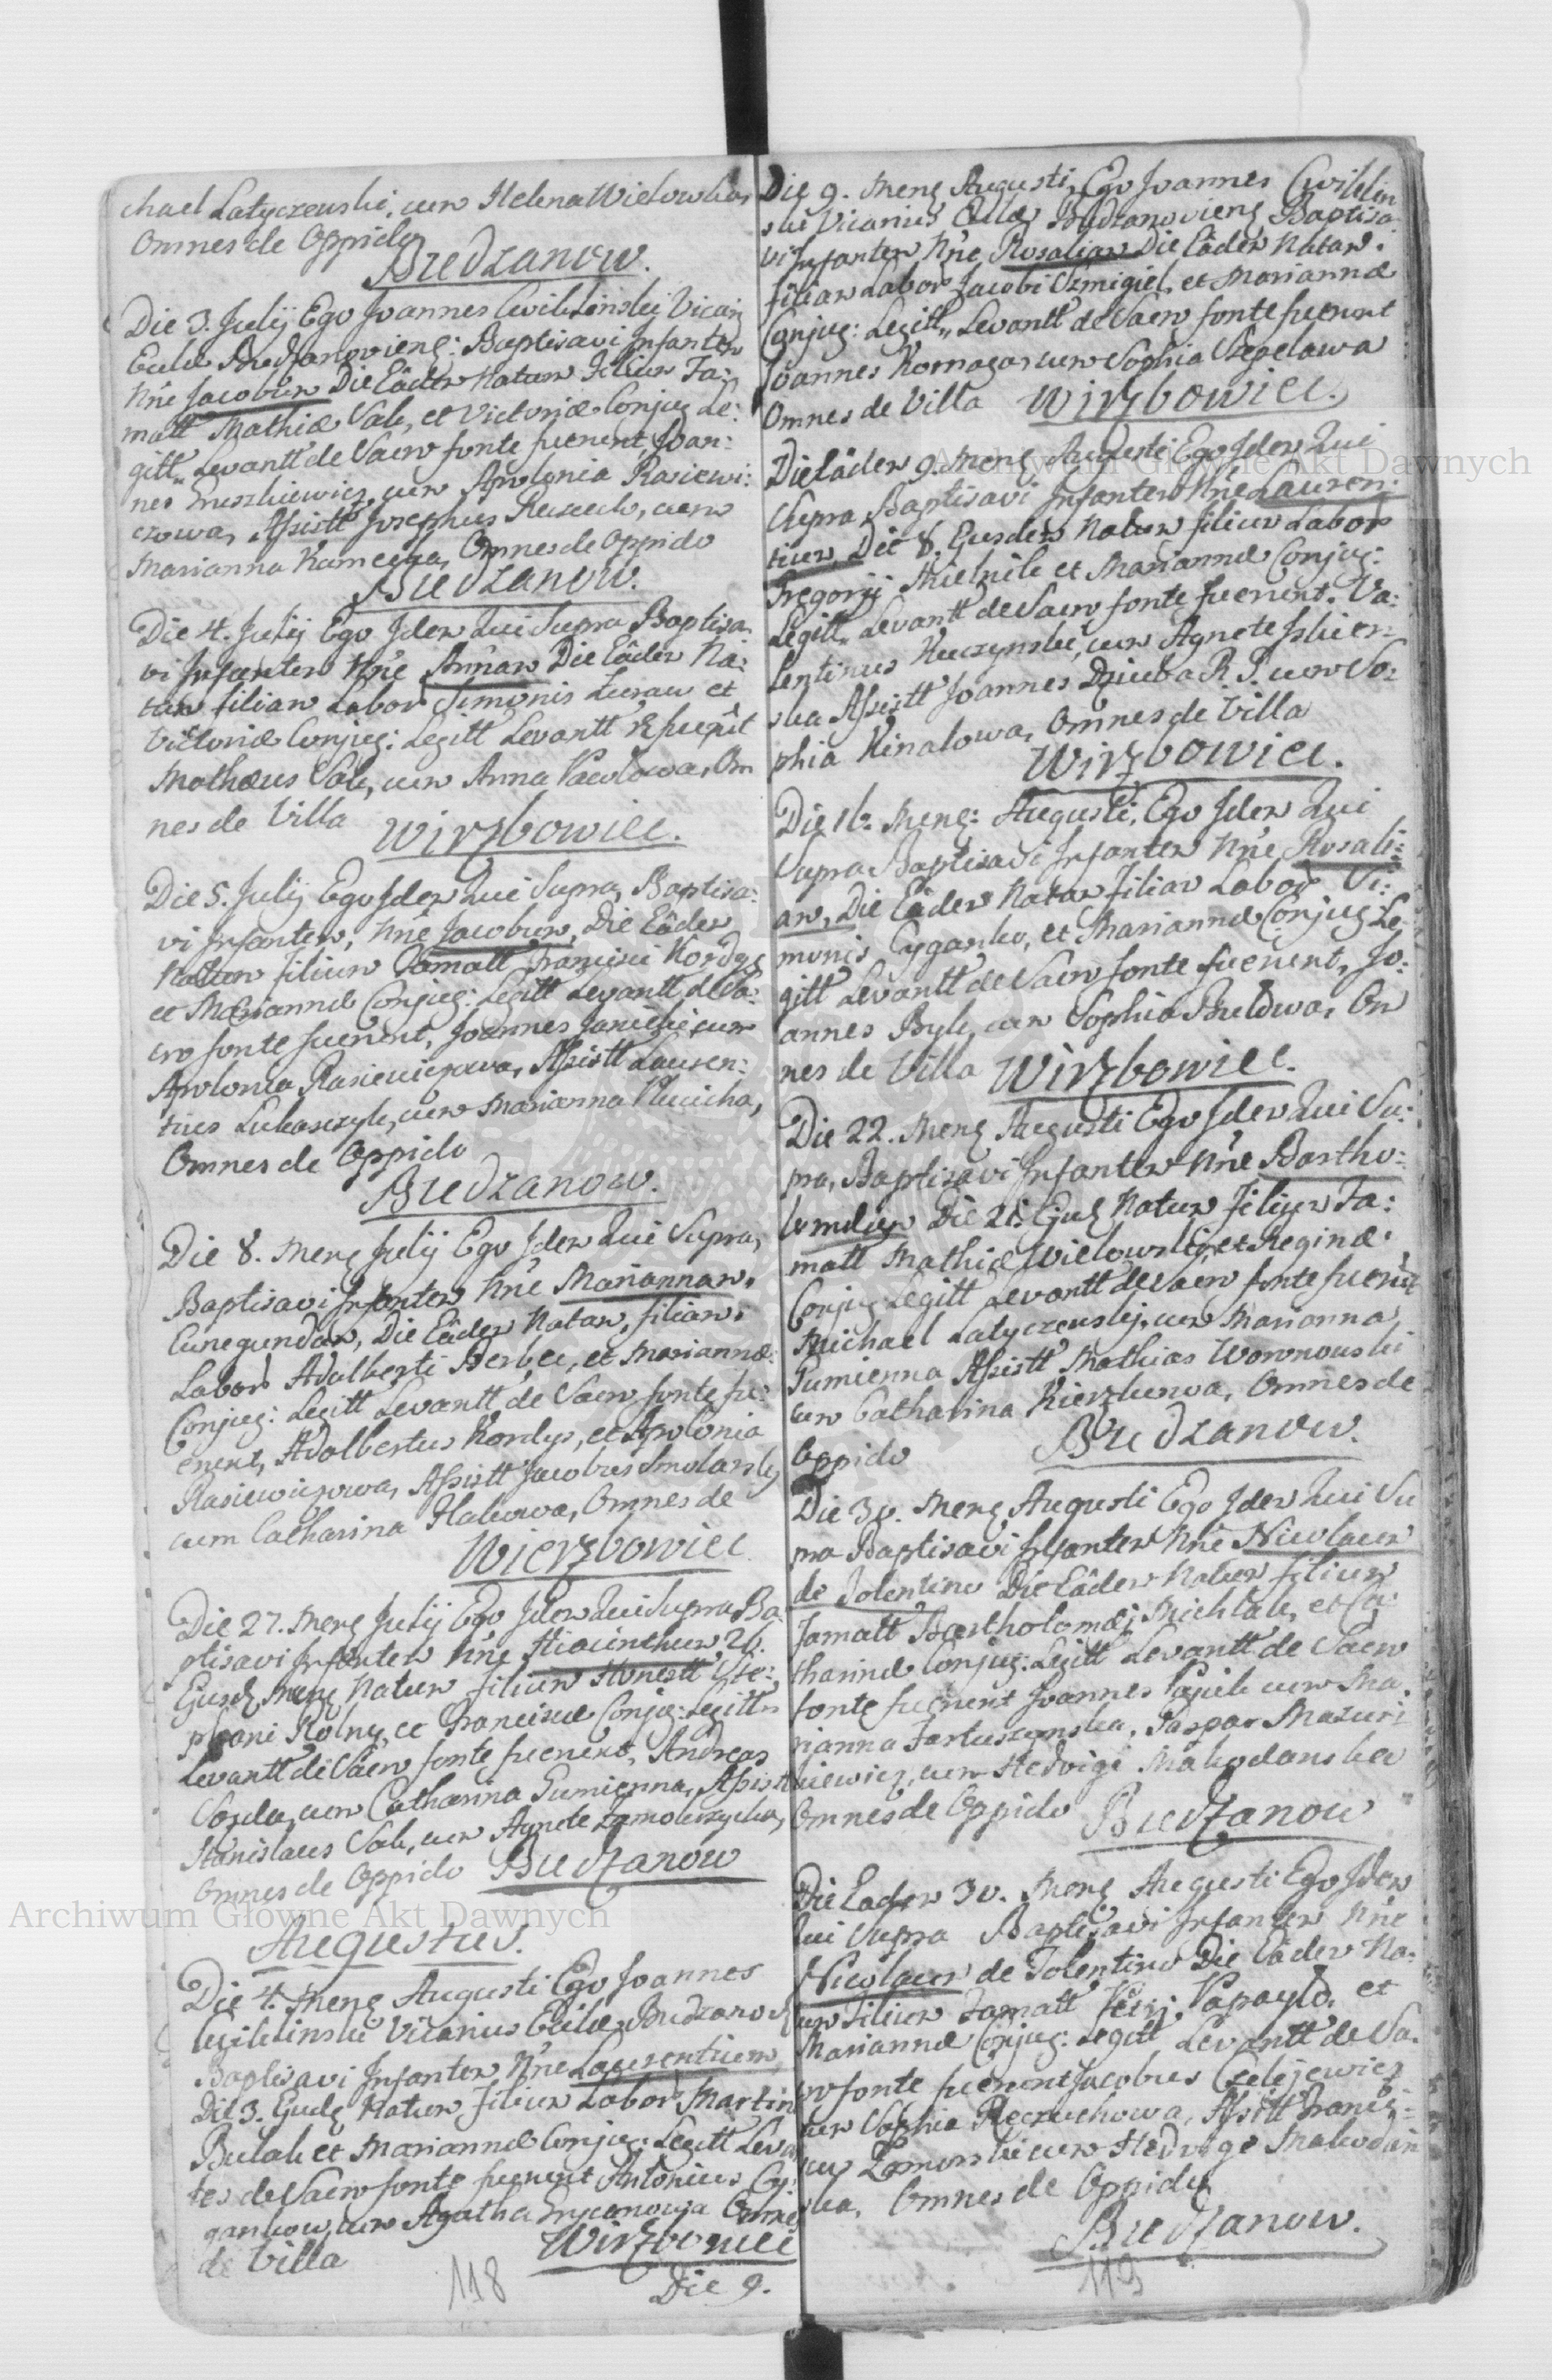 chael Latyczewski, cum Helena Wielowska,
Omnes de Oppido
Budzanow.
Die 3. Julij Ego Joannes Cwiklinskij Vicarius
Eccl Budzanovieng: Baptisavi Infantem
Nne Jacobum Die Eâdem Natum Filium Fa:
matt Mathiæ Sak, et Victoriæ Conjug Le:
gitt, Levantt de Sacro fonte fuerunt, Joan:
nes Gruszkiewicz cum Apolonia Rasiewi:
czowa, Assistt Josephus cum
Marianna Omnes de Oppido
Budzanow.
Die 4. Julij Ego Idem Qui Supra Baptisa
vi Infantem Nne Annam Die Eâdem Na:
tam filiam Labor Simonis et
Victoriæ Conjug: Legitt Levantt fuerût
Mathæus Sak, cum Anna Pawlowa, Om
nes de Villa Wirzbowiec.
Die 5. Julij Ego Idem Qui Supra Baptisa:
vi Infantem, Nne Jacobum, Die Eâdem
Natum filium Famatt Francisci Kordys
et Mariannæ Conjug: Legitt Levantt de Sa:
cro fonte fuerunt, Joannes Janicki, cum
Apolonia Rasiewiczowa, Assistt Lauren:
tius Lukaszczyk, cum Marianna
Omnes de Oppido
Budzanow.
Die 8. Meng Julij Ego Idem Qui Supra,
Baptisavi Infantem Nne Mariannam.
Cunegundam, Die Eâdem Natam, filiam.
Labor Adalberti et Mariannæ
Conjug: Legitt Levantt de Sacro fonte fu:
erunt, Adalbertus Kordys, et Apolonia
Rasiewiczowa, Assistt Jacobus Smolarskij
cum Catharina Omnes de
Wierzbowiec
Die 27. Meng Julij Ego Idem Qui Supra Ba
ptisavi Infantem Nne Hiacinthum 26.
Eiusd Meng Natum filium Honestt Ste:
phani Rolny, et Franciscæ Conjug: Legittm
Levantt de Sacro fonte fuerunt, Andreas
cum Catharina Gumienna, Assistt
Stanislaus Sak, cum Agnete
Omnes de Oppido Budzanow
Augustus.
Die 4. Meng Augusti Ego Joannes
Cwiklinski Vicarius Eccliæ Budzanov
Baptisavi Infantem Nne Laurentium,
Die 3. Ejusdg Natum Filium Labor Martin
Bulak et Mariannæ Conjug: Legitt Levan
tes de Sacro fonte fuerunt Antonius Cy:
gankow, cum Agatha Omnes
de Villa Wirzbowiec
118 Die 9.
Die 9. Meng Augusti, Ego Joannes Cwiklin
ski Vicarius Ecclæ Budzanovieng Baptisa
vi Infantem, Nne Rosaliam Die Eâdem Natam.
filiam Labor Jacobi Szmigiel, et Mariannæ
Conjug: Legitt,, Levantt de Sacro fonte fuerunt
Joannes Romazan cum Sophia
Omnes de Villa Wirzbowiec.
Die Eâdem 9. Meng Augusti Ego Idem Qui
Supra Baptisavi Infantem Nne Lauren:
tium, Die 8. Ejusdem Natum filium Labor
Gregorij Mielnik et Mariannæ Conjug:
Legitt,, Levantt de Sacro fonte fuerunt. Va:
lentinus Kuczynski, cum Agnete
ska Assistt Joannes Dziuba R. P. cum So:
phia Kinalowa, Omnes de Villa
Wirzbowiec.
Die 16. Meng: Augusti, Ego Idem Qui
Supra Baptisavi Infantem Nne Rosali:
am, Die Eâdem Natam Filiam Labor Si:
monis Cyganko, et Mariannæ Conjug: Le
gitt Levantt de Sacro fonte fuerunt, Jo:
annes Byk, cum Sophia Om
nes de Villa Wirzbowiec.
Die 22. Meng Augusti Ego Idem Qui Su:
pra, Baptisavi Infantem Nne Bartho:
lomæum Die 21. Ejusg Natum Filium Fa:
matt Mathiæ Wielowskij, et Reginæ.
Conjug: Legitt Levantt de Sacro fonte fuerunt
Michael Latyczewskij, cum Marianna,
Gumienna Assistt Mathias Woronowski
cum Catharina Omnes de
Oppido Budzanow.
Die 30. Meng Augusti Ego Idem Qui Su
pra Baptisavi Infantem Nne Nicolaum
de Tolentino Die Eâdem Natum filium
Famatt Bartholomæi Michlak, et Ca:
tharinæ Conjug: Legitt Levantt de Sacro
fonte fuerunt Joannes cum Ma.
rianna Gaspar Mazuri
kiewicz, cum Hedvige Makodanska
Omnes de Oppido Budzanow
Die Eadem 30. Meng Augusti Ego Idem
Qui Supra Baptisavi Infantem Nne
Nicolaum de Tolentino Die Eâdem Na:
tum Filium Famatt Petri et
Mariannæ Conjug: Legitt Levantt de Sa.
cro fonte fuerunt Jacobus
cum Sophia Assistt Francis:
cus cum Hedvige Makodan
ska. Omnes de Oppido
Budzanow.
119
Archiwum Główne Akt Dawnych
Archiwum Główne Akt Dawnych